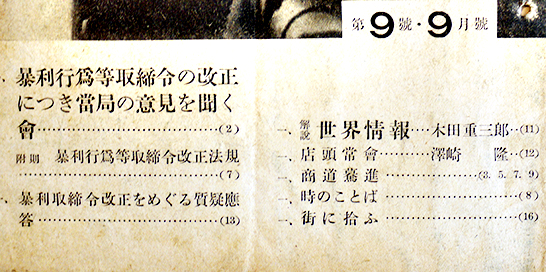 第9號・9月號
一、暴利行爲等取締令の改正
につき當局の意見を聞く
會…………(2)
附則 暴利行爲等取締令改正法規
…………(7)
一、暴利取締令改正をめぐる質疑應
答…………(13)
一、解説 世界情報…木田重三郎…(11)
一、店頭常會…………澤崎 隆…(12)
一、商道驀進…………(3.5.7.9)
一、時のことば…………(8)
一、街に拾ふ…………(16)